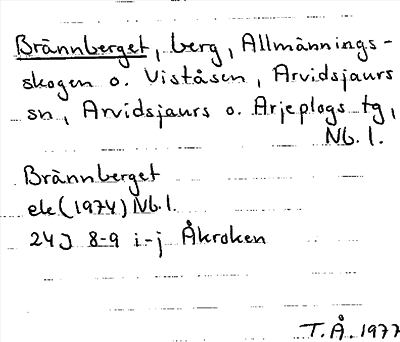 Brännberget, berg, Allmännings-
skogen o. Viståsen, Arvidsjaurs
sn, Arvidsjaurs o. Arjeplogs tg,
Nb. l.
Brännberget
ek (1974) Nb. l.
24J 8-9 i-j Åkroken
T. Å. 1977